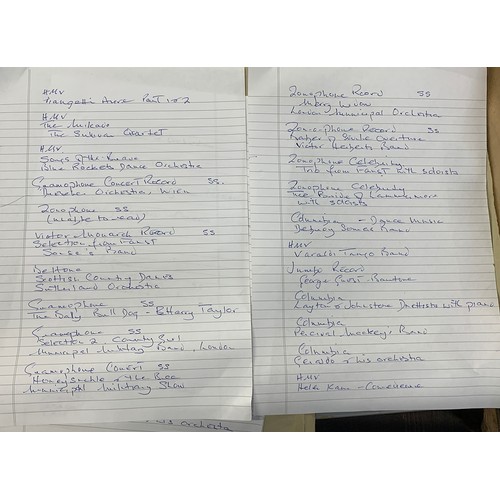 HMV
Part 1 & 2
HMV
The Mikado
The Quartet
HMV
Songs of the
Blue Rockets Dance Orchestra
Gramophone Concert Record SS.
Orchestra, Wien
Zonophone SS
(unable to read)
Victor Monarch Record SS
Selection from Faust
Sousa's Band
Beltona
Scottish Country Dances
Sutherland Orchestra
Gramophone SS
The Baby Bull Dog - Harry Taylor
Gramophone SS
Selection 2 Country Girl
Municipal Military Band, London
Gramophone Concert SS
Honeysuckle & the Bee
Municipal Military Show
Zonophone Record SS
Merry Widow
London Municipal Orchestra
Zonophone Record SS
Overture
Victor Herberts Band
Zonophone Celebrity
Trio from Faust with soloists
Zonophone Celebrity
with soloists
Columbia - Dance Music
Debroy Somers Band
HMV
Tango Band
Jumbo Record
George
Columbia
Layton & Johnstone Duettists with piano
Columbia
Percival Mackey's Band
Columbia
Geraldo & his orchestra
HMV
Helen Kane -
his orchestra